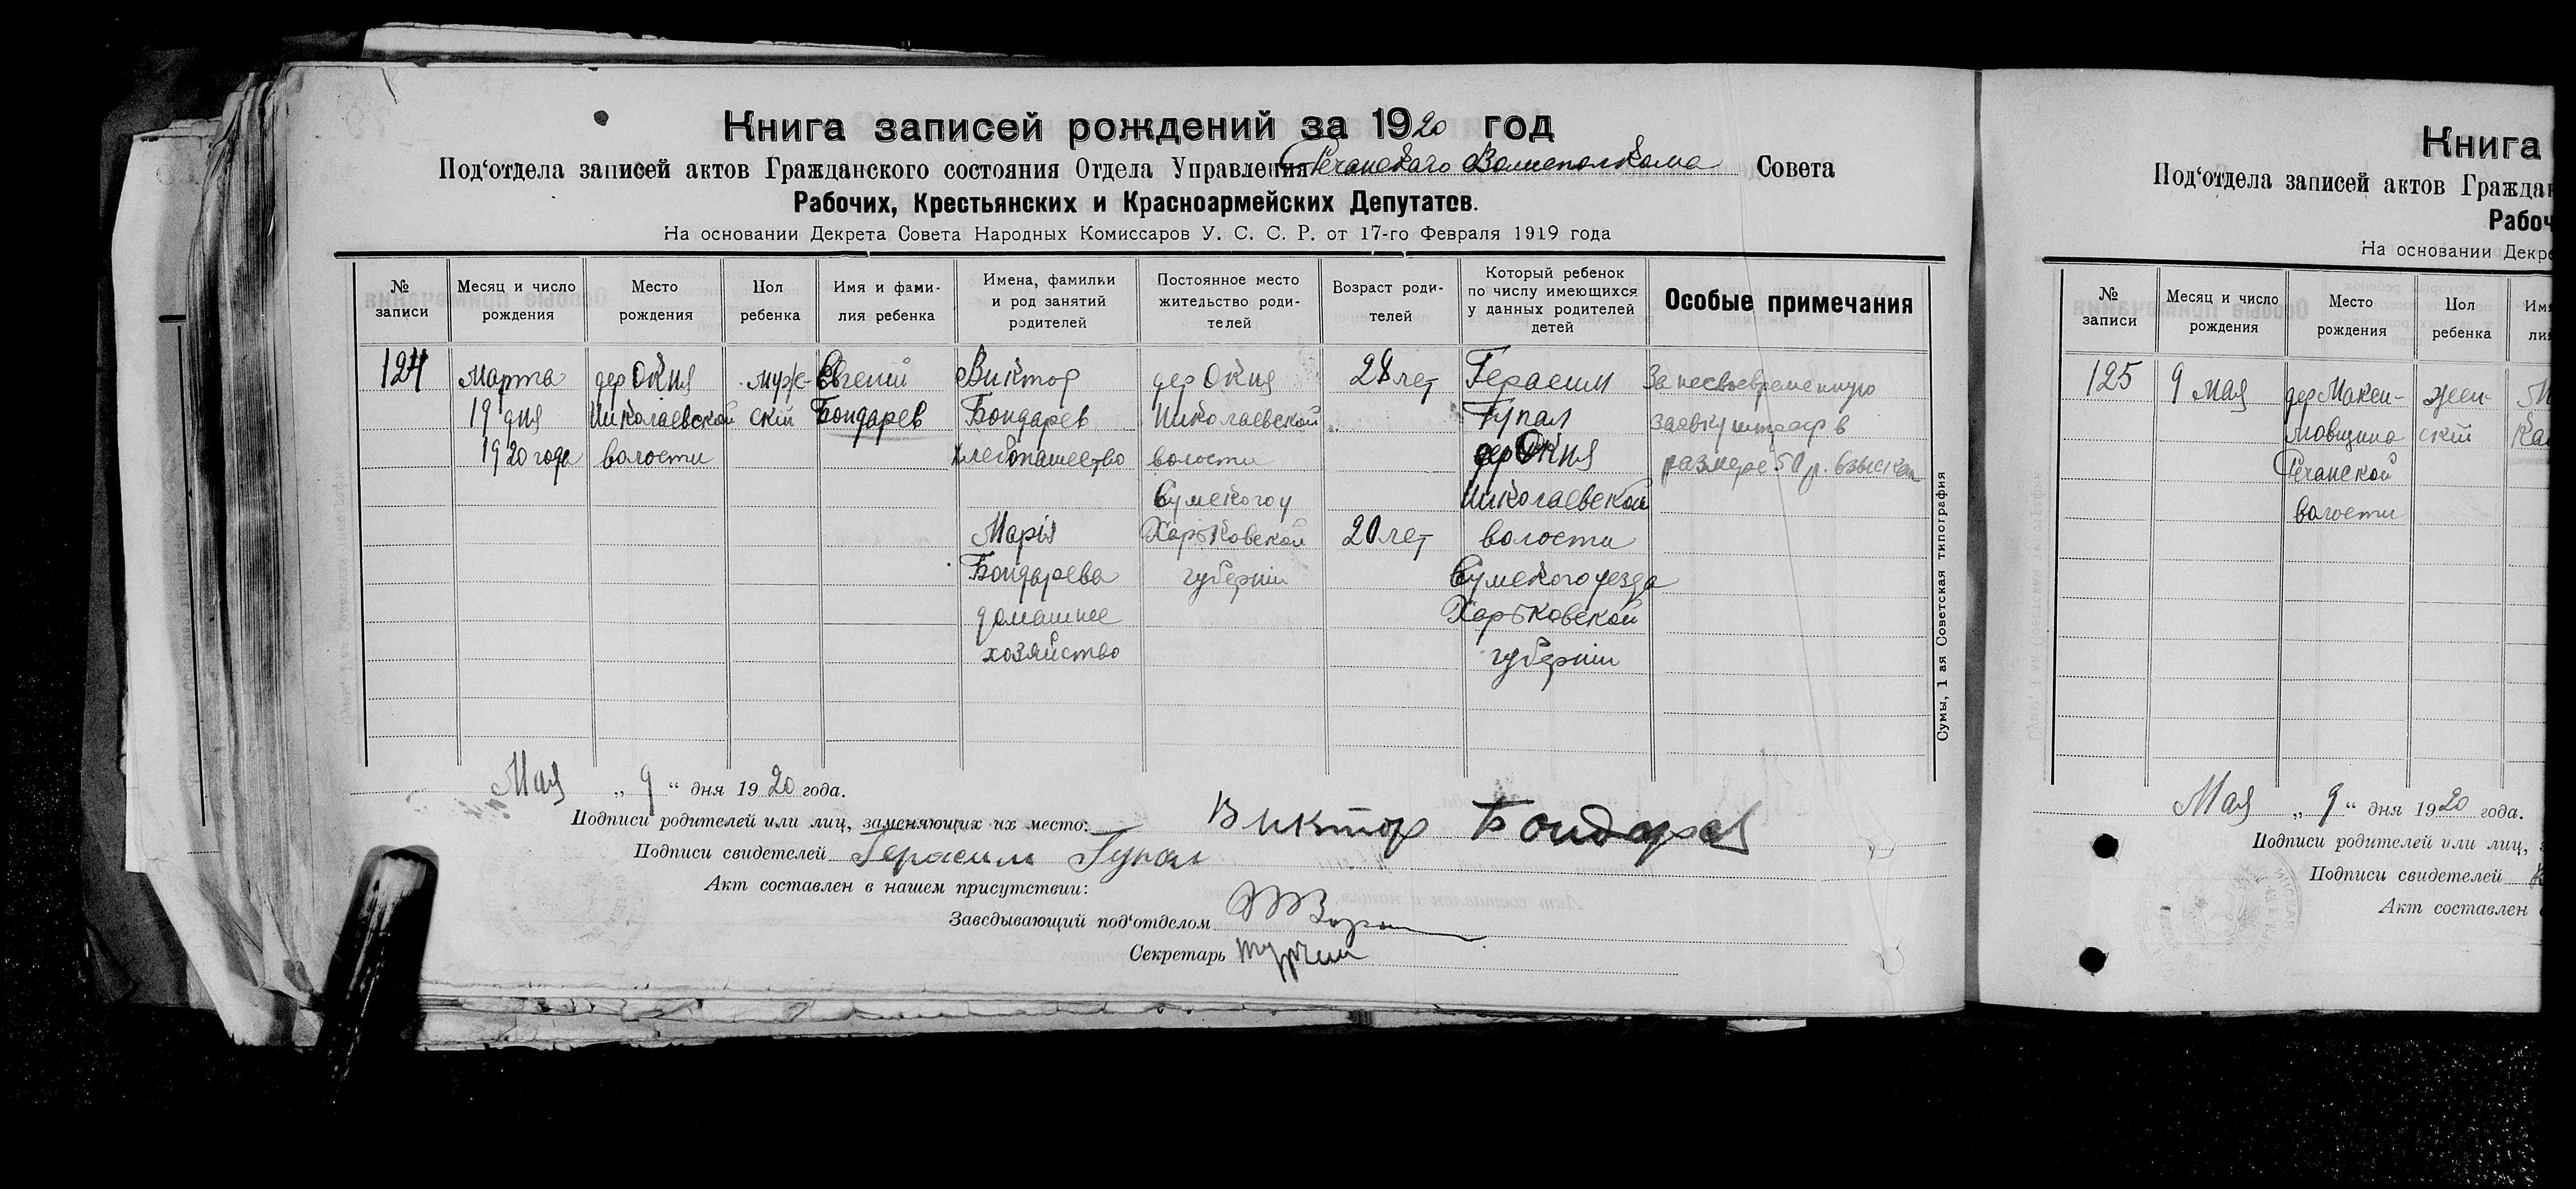 Книга записей рождений за 1920 год
Под'отдела записей актов Гражданского состояния Отдела Управления Речанского Волисполкома Совета
Рабочих, Крестьянских и Красноармейских Депутатов.
На основании Декрета Совета Народных Комиссаров У. С. С. Р. от 17-го Февраля 1919 года
№ записи
Месяц и число рождения
Место рождения
Пол ребенка
Имя и фамилия ребенка
Имена, фамилки и род занятий родителей
Постоянное место жительство родителей
Возраст родителей
Который ребенок по числу имеющихся у данных родителей детей
Особые примечания
124 марта дер Окня муж- Евгений Виктор дер Окня 28 лет Герасим За несвоевременную
19 дня Николаевской скій Бондарев Бондарев Николаевской Гупал заявку штраф в
1920 года волости хлебопашество волости дер Окня размере 50 р. взыскан
Сумского у Николаевской
Марія Харьковской 20 лет волости
Бондарева губернии Сумского уезда
домашнее Харьковской
хозяйство губернии
Мая „ 9 “ дня 1920 года.
Подписи родителей или лиц, заменяющих их место: Виктор Бондарев
Подписи свидетелей Герасим Гупал
Акт составлен в нашем присутствии:
Заведывающий под'отделом
Секретарь
Сумы, 1 ая Советская типография
Книга
Под'отдела записей актов Граждан
Рабоч
На основании Декре
№ записи
Месяц и число рождения
Место рождения
Пол ребенка
Имя
ли
125 9 мая дер Макси- жен-
мовщина скій
Речанской
волости
Мая „ 9 “ дня 1920 года.
Подписи родителей или лиц,
Подписи свидетелей
Акт составлен